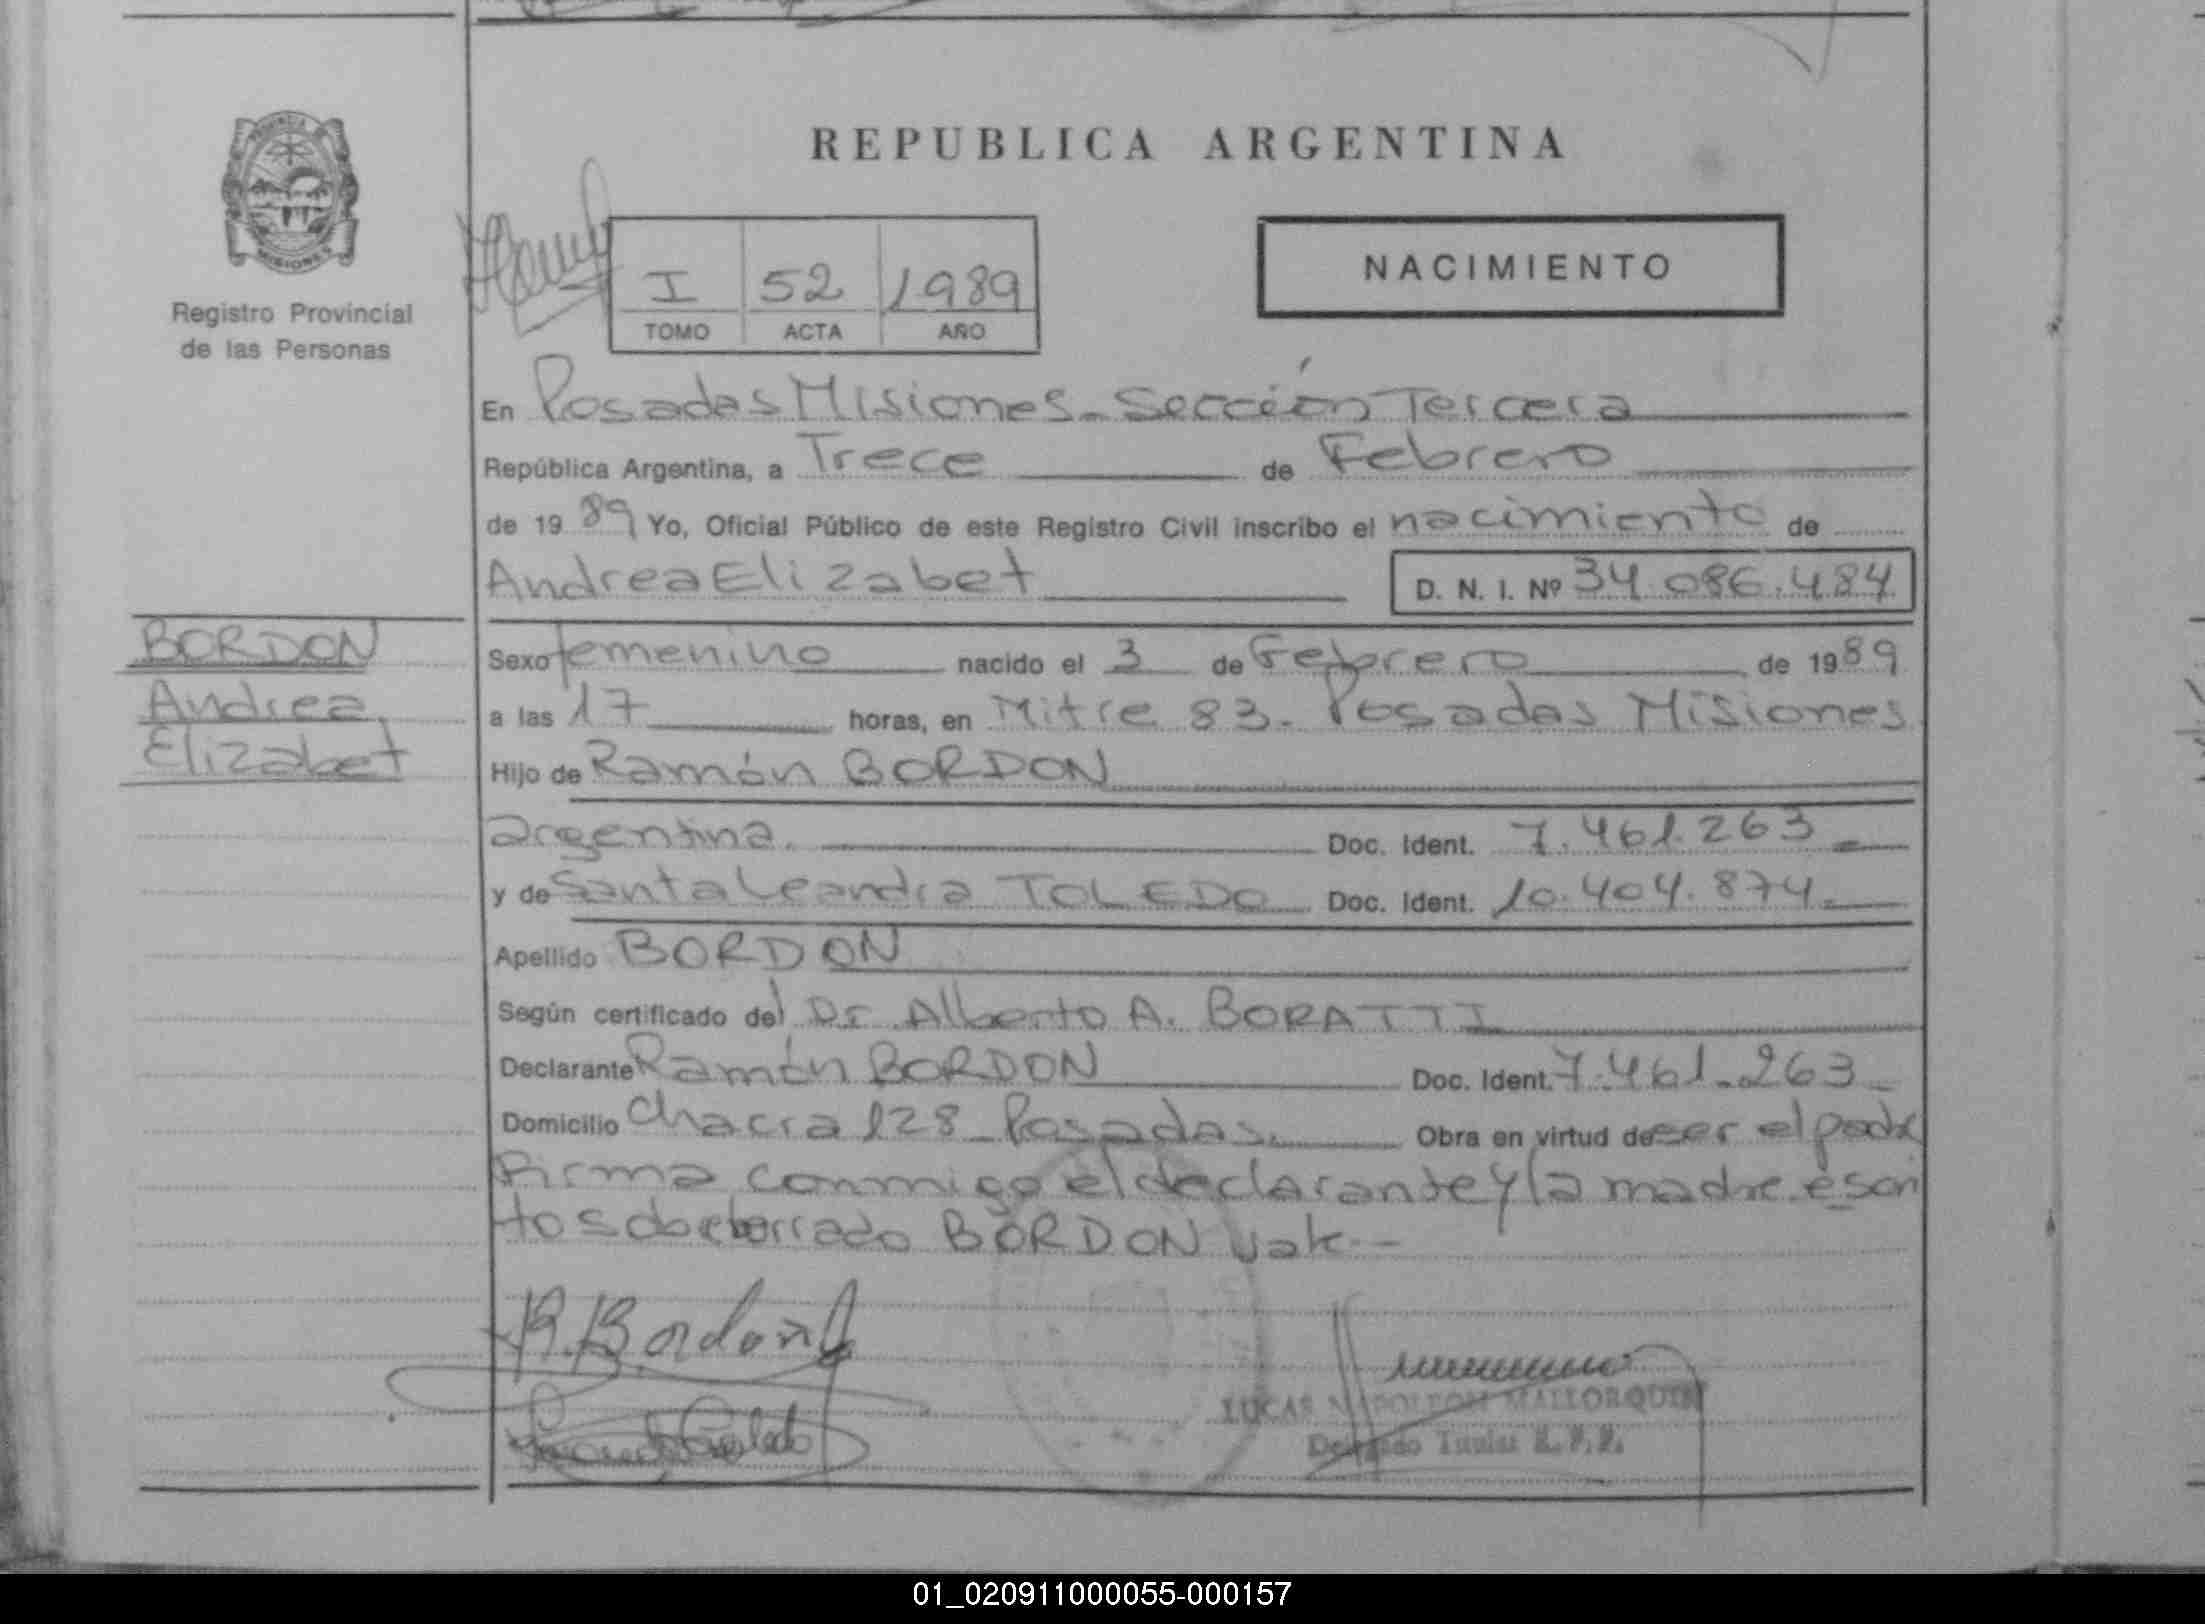 REPUBLICA ARGENTINA
PROVINCIA
MISIONES
Registro Provincial
de las Personas
I 52 1989
TOMO ACTA AÑO
NACIMIENTO
En Posadas Misiones - Sección Tercera
República Argentina, a Trece de Febrero
de 1989 Yo, Oficial Público de este Registro Civil inscribo el nacimiento de
Andrea Elizabet D. N. I. Nº 34.086.484
BORDON
Andrea
Elizabet
Sexo femenino nacido el 3 de Febrero de 1989
a las 17 horas, en Mitre 83 - Posadas Misiones
Hijo de Ramón BORDON
argentina. Doc. Ident. 7.461.263
y de Santa Leandra TOLEDO Doc. Ident. 10.404.874
Apellido BORDON
Según certificado del Dr Alberto A. BORATTI
Declarante Ramón BORDON Doc. Ident. 7.461.263
Domicilio Chacra 128 - Posadas. Obra en virtud de ser el padre
Firma conmigo el declarante y la madre. escri
tos/borrado BORDON vale -
R. Bordon
LUCAS NAPOLEON MALLORQUIN
Delegado Titular R. P. P.
01_020911000055-000157